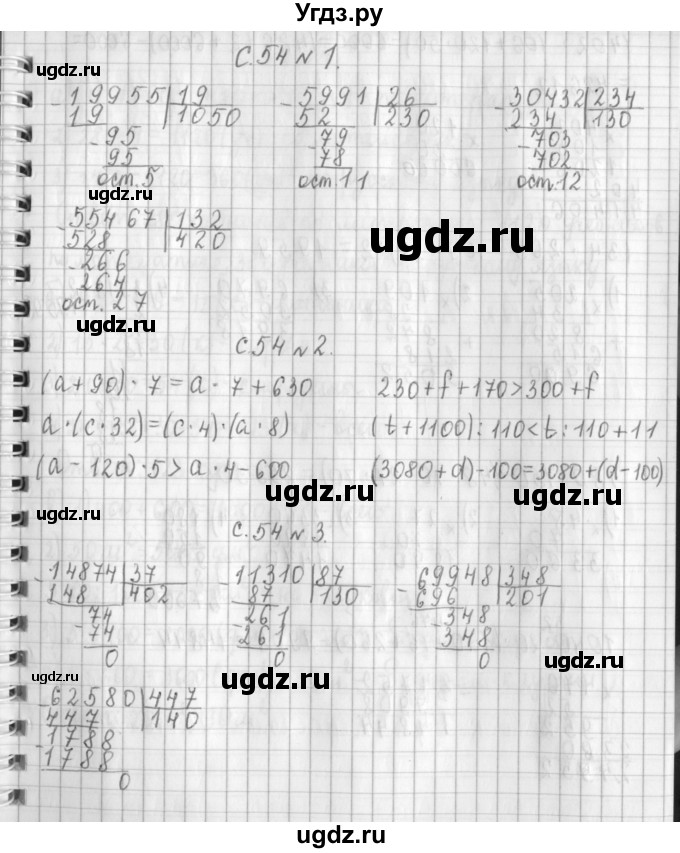 Угдз.ру
С.54 № 1.
19955 | 19
19 | 1050
95
95
ост. 5
5991 | 26
52 | 230
79
78
ост. 11
30432 | 234
234 | 130
703
702
ост. 12
ugdz.ru
55467 | 132
528 | 420
266
264
ост. 27
ugdz.ru
ugdz.ru
ugdz.ru
С.54 № 2.
(a + 90) · 7 = a · 7 + 630
230 + f + 170 > 300 + f
a · (c · 32) = (c · 4) · (a · 8)
(t + 1100) : 110 < t : 110 + 11
(a - 120) · 5 > a · 4 - 600
(3080 + d) - 100 = 3080 + (d - 100)
ugdz.ru
ugdz.ru
ugdz.ru
С.54 № 3.
14874 | 37
148 | 402
74
74
0
11310 | 87
87 | 130
261
261
0
69948 | 348
696 | 201
348
348
0
ugdz.ru
ugdz.ru
ugdz.ru
62580 | 447
447 | 140
1788
1788
0
ugdz.ru
ugdz.ru
ugdz.ru